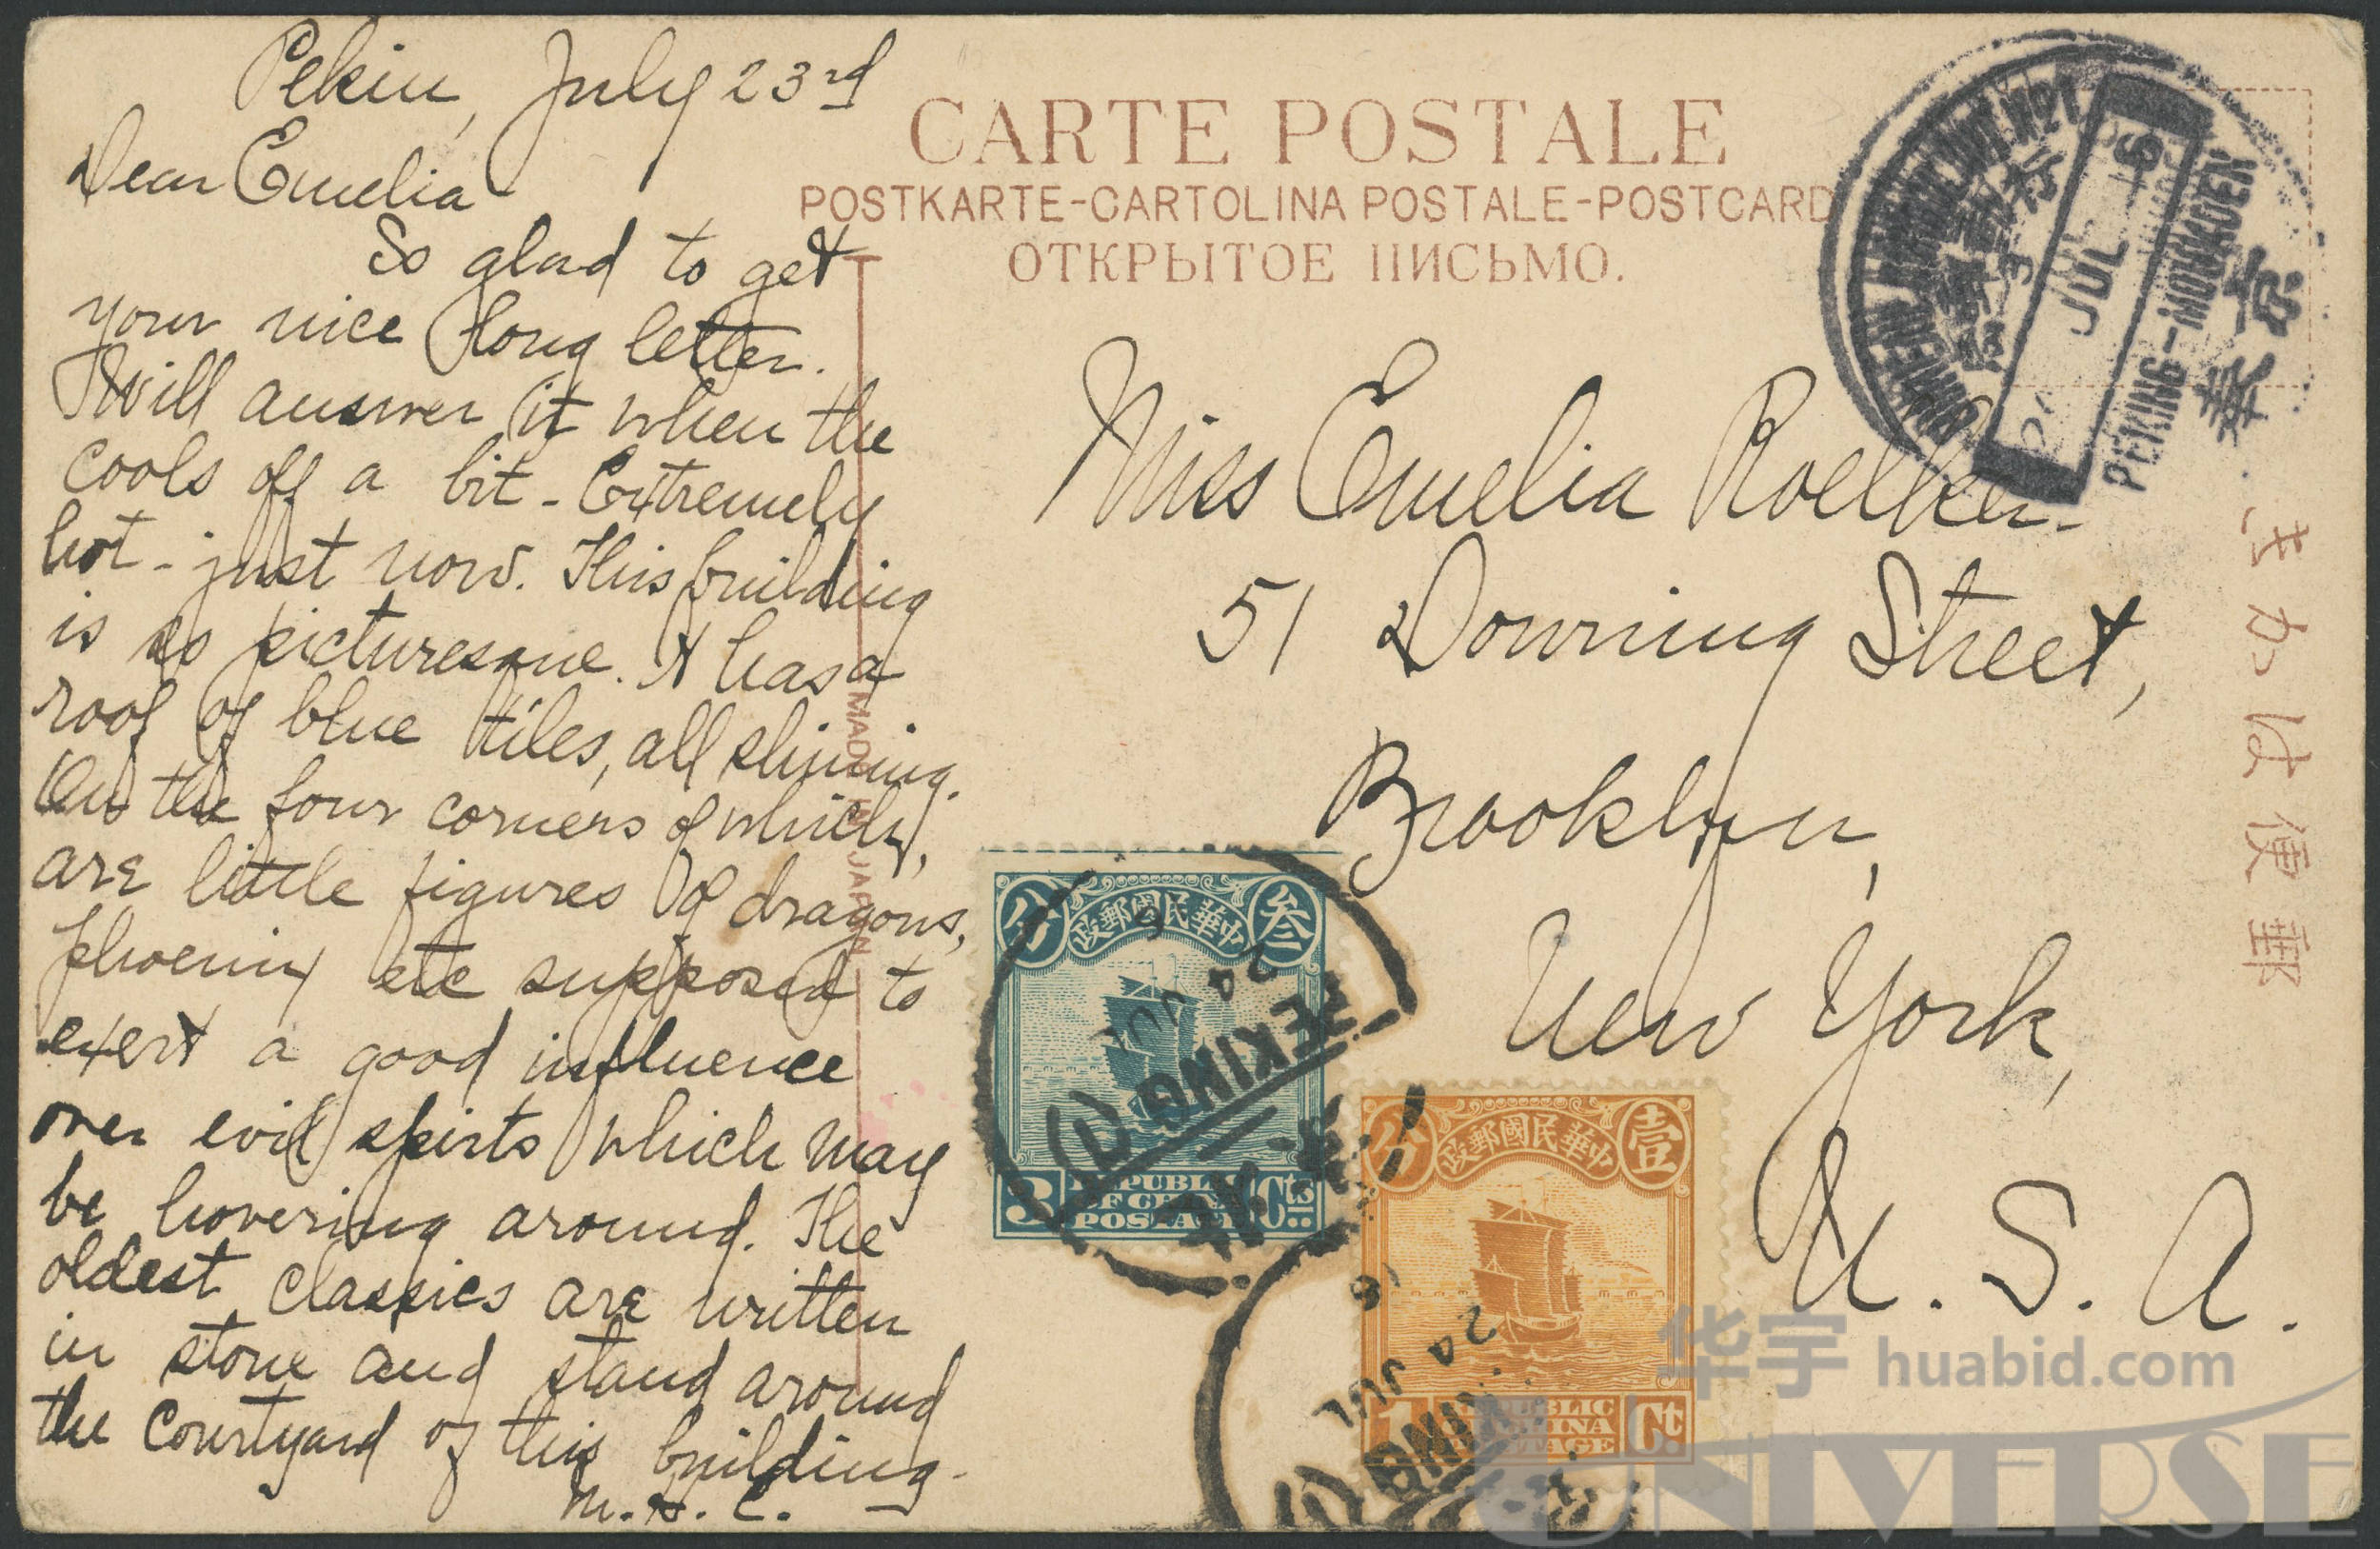 Pekin, July 23rd
Dear Emelia
So glad to get
your nice long letter.
Will answer it when the
cools off a bit - Extremely
hot - just now. This building
is so picturesque. It has a
roof of blue tiles, all shining.
On the four corners of which,
are little figures of dragons,
phoenix etc supposed to
exert a good influence
over evil spirits which may
be hovering around. The
oldest classics are written
in stone and stand around
the courtyard of this building.
M. H. C.
CARTE POSTALE
POSTKARTE-CARTOLINA POSTALE-POSTCARD
ОТКРЫТОЕ ПИСЬМО.
MADE IN JAPAN
Miss Emelia Roelker
51 Downing Street,
Brooklyn,
New York,
U. S. A.
PEKING-MOUKDEN
JUL
郵便はかき
中華民國郵政
叁
分
3 Cts
REPUBLIC
OF CHINA
POSTAGE
PEKING (1)
24 JUL
中華民國郵政
壹
分
1 Ct.
REPUBLIC
OF CHINA
POSTAGE
24 JUL
PEKING (1)
华宇 huabid.com
UNIVERSE